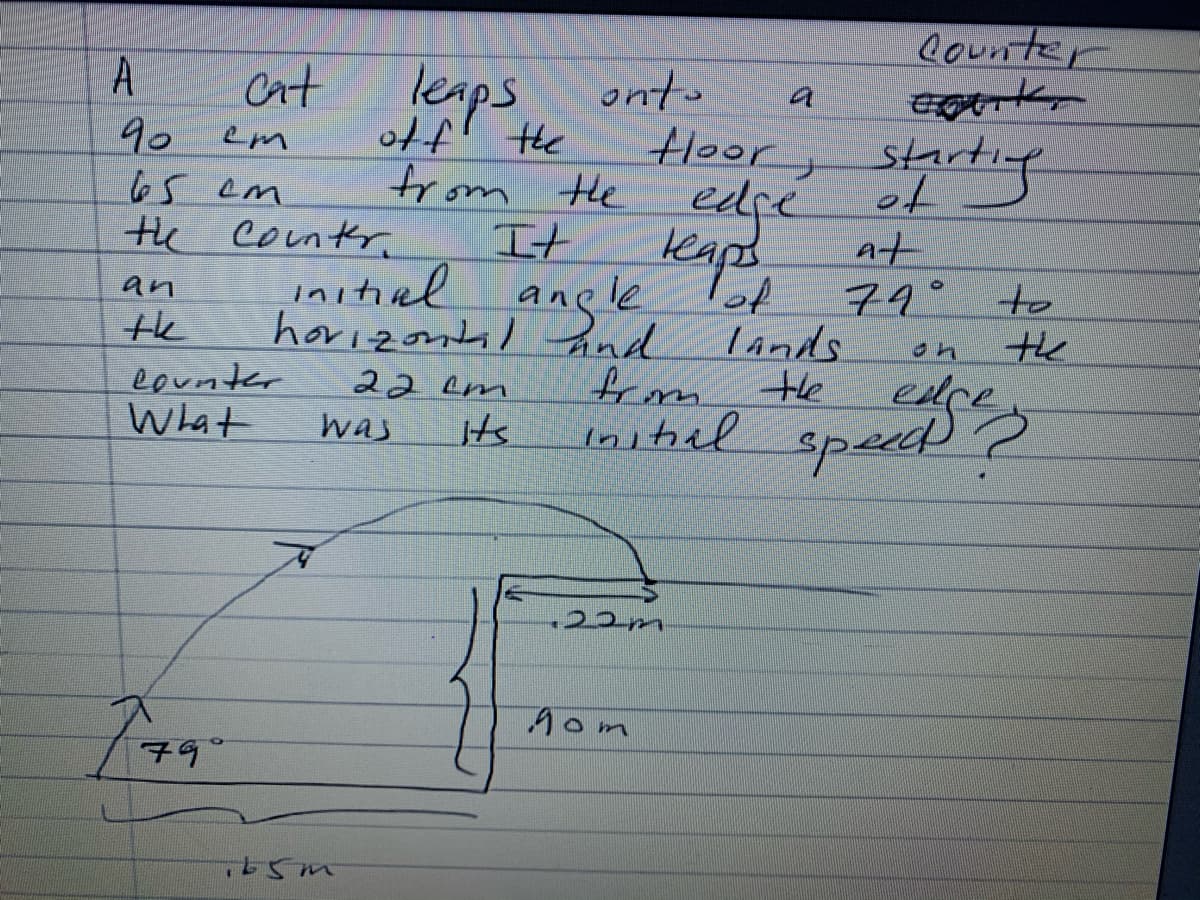 counter
A cat leaps onto a
90 cm off the floor, starting
65 cm from the edge of
the counter. It leaps at
an initial angle of 79° to
the horizontal and lands on the
counter 22 cm from the edge.
What was its initial speed?
.22m
.90m
79°
.65m